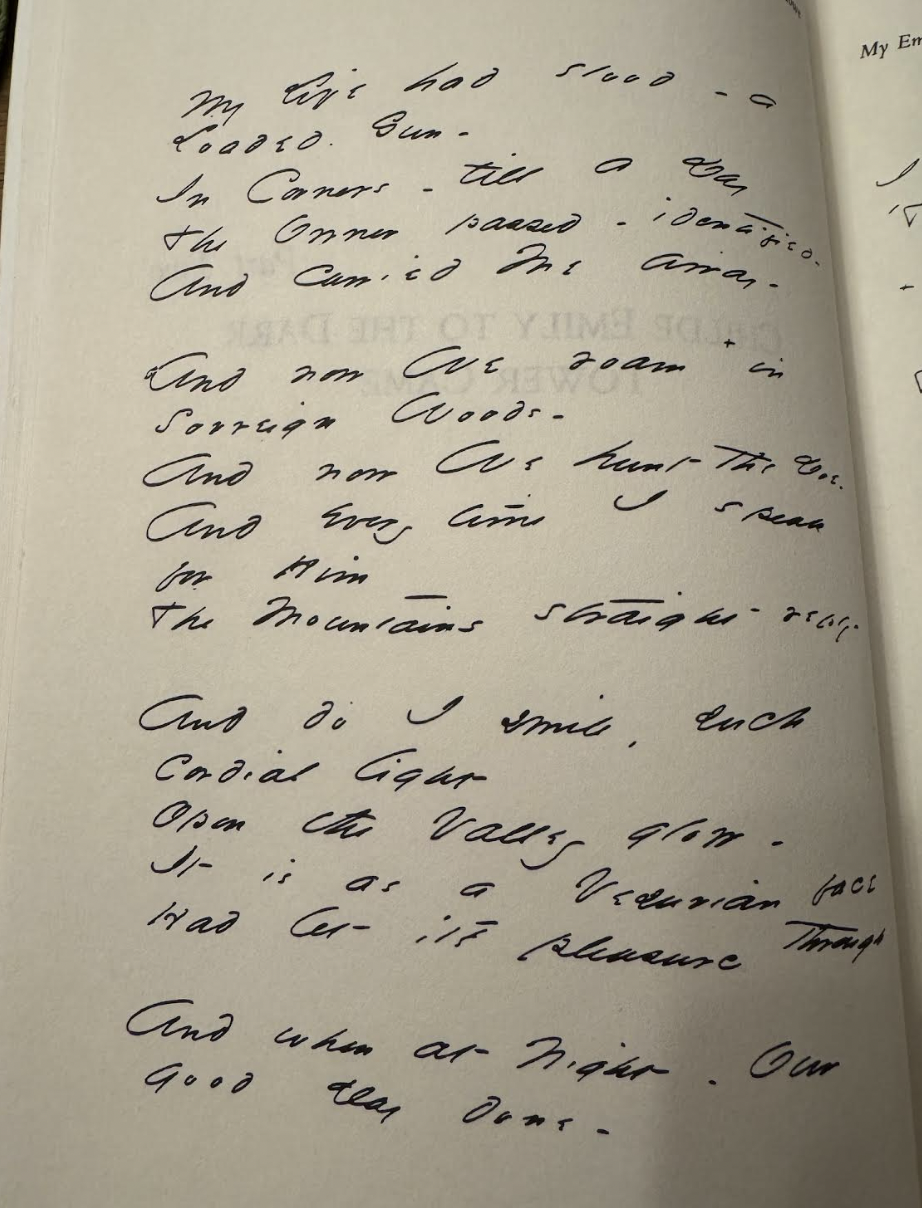 My Em
My Life had stood - a
Loaded Gun -
In Corners - till a Day
The Owner passed - identified -
And carried Me away -
And now We roam + in
Sovreign Woods -
And now We hunt the Doe -
And every time I speak
for Him
The Mountains straight reply -
And do I smile, such
Cordial light
Opon the Valley glow -
It is as a Vesuvian face
Had let it's pleasure through
And when at Night - Our
good Day done -
CHILDE EMILY TO THE DARK
TOWER CAME